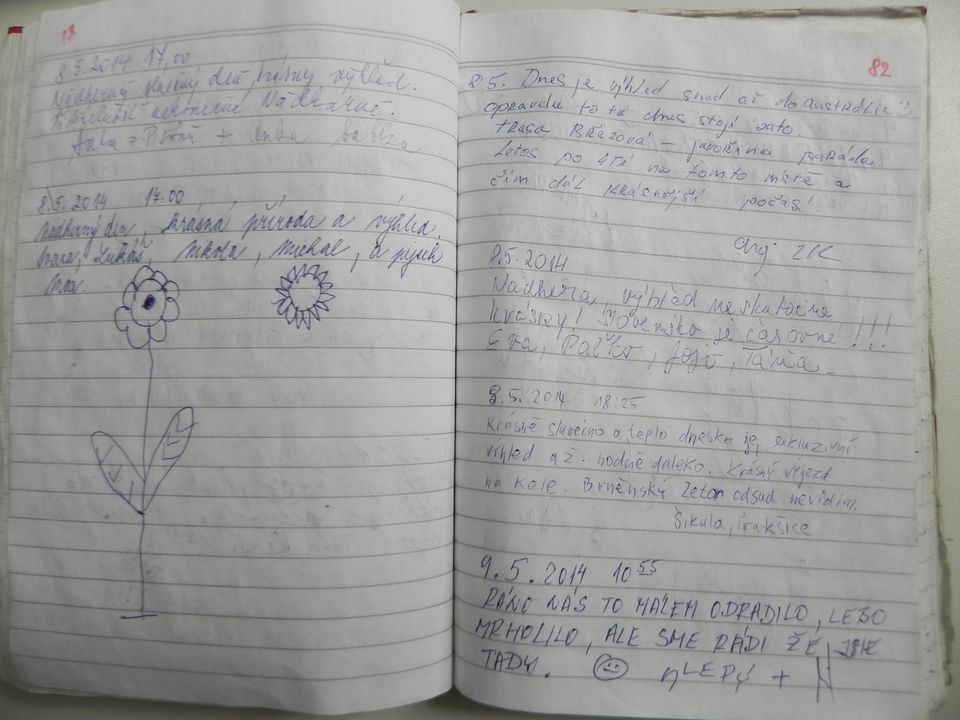 18
8.5.2014 17,00
Nádherný slunečný deň, krásny výhľad.
Nádherné.
+ babka
8.5.2014 17:00
Nádherný den, krásná příroda a výhled.
Lukáš, Nikola, Michal, a pejsek
82
8.5. Dnes je výhled snad až do Austrálie
opravdu to tu dnes stojí zato.
trasa Březová – Javořina paráda.
Letos po 4té na tomto místě a
čím dál krásnější počasí
8.5.2014
Nádhera, výhľed neskutočne
krásny! Slovensko je čarovné!!!
Eva, Palko, Jojo, Táňa.
8.5.2014 18:25
Krásně slunečno a teplo dneska je, exkluzivní
výhled až.. hodně daleko. Krásný výjezd
na kole. Brněnský Zetor odsud nevidím.
Šikula, Prakšice
9.5.2014 10 55
RÁNO NÁS TO MÁLEM ODRADILO, LEBO
MRHOLILO, ALE SME RÁDI ŽE JSME
TADY. SLEPÝ + N